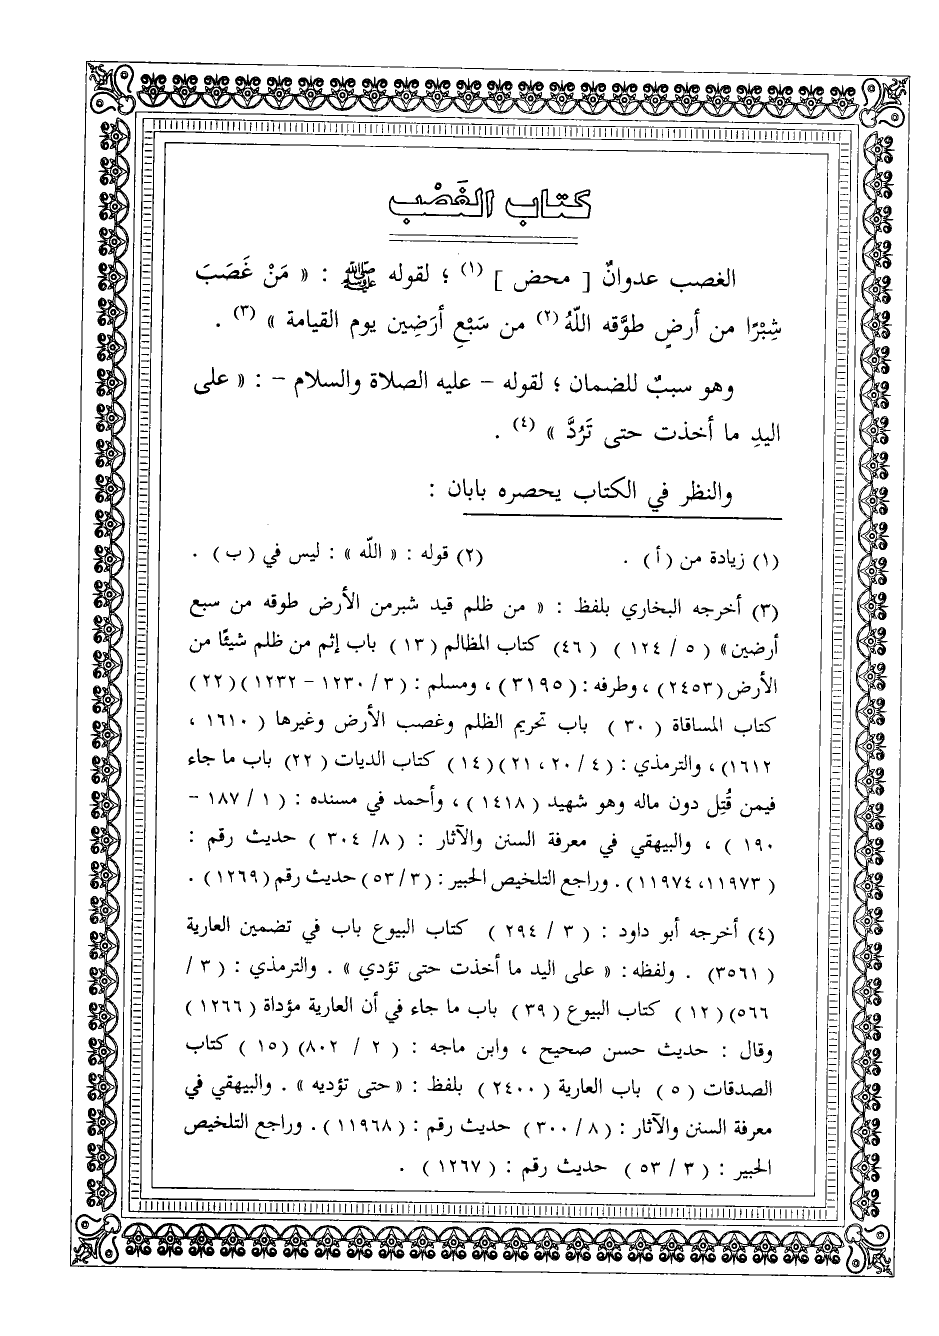 كتاب الغَصْب
الغصب عدوانٌ [ محض ] (١) ؛ لقوله ﷺ : « مَنْ غَصَبَ
شِبْرًا من أرضٍ طوَّقه اللّهُ (٢) من سَبْعِ أرَضِين يوم القيامة » (٣) .
وهو سببٌ للضمان ؛ لقوله – عليه الصلاة والسلام – : « على
اليدِ ما أخذت حتى تَرُدَّ » (٤) .
والنظر في الكتاب يحصره بابان :
(١) زيادة من (أ) . (٢) قوله : « اللّه » : ليس في (ب) .
(٣) أخرجه البخاري بلفظ : « من ظلم قيد شبرمن الأرض طوقه من سبع
أرضين» ( ٥ / ١٢٤ ) (٤٦) كتاب المظالم ( ١٣ ) باب إثم من ظلم شيئًا من
الأرض (٢٤٥٣) ، وطرفه : (٣١٩٥) ، ومسلم : (٣ / ١٢٣٠ – ١٢٣٢) (٢٢)
كتاب المساقاة ( ٣٠ ) باب تحريم الظلم وغصب الأرض وغيرها ( ١٦١٠ ،
١٦١٢) ، والترمذي : ( ٤ / ٢٠ ، ٢١) (١٤ ) كتاب الديات ( ٢٢) باب ما جاء
فيمن قُتِل دون ماله وهو شهيد ( ١٤١٨ ) ، وأحمد في مسنده : ( ١ / ١٨٧ –
١٩٠ ) ، والبيهقي في معرفة السنن والآثار : ( ٨/ ٣٠٤ ) حديث رقم :
( ١١٩٧٣، ١١٩٧٤) . وراجع التلخيص الحبير : (٣ / ٥٣) حديث رقم (١٢٦٩) .
(٤) أخرجه أبو داود : ( ٣ / ٢٩٤ ) كتاب البيوع باب في تضمين العارية
(٣٥٦١) . ولفظه : « على اليد ما أخذت حتى تؤدي » . والترمذي : ( ٣ /
٥٦٦) (١٢ ) كتاب البيوع ( ٣٩ ) باب ما جاء في أن العارية مؤداة (١٢٦٦ )
وقال : حديث حسن صحيح ، وابن ماجه : ( ٢ / ٨٠٢) (١٥ ) كتاب
الصدقات ( ٥ ) باب العارية ( ٢٤٠٠ ) بلفظ : «حتى تؤديه » . والبيهقي في
معرفة السنن والآثار : ( ٨ / ٣٠٠ ) حديث رقم : ( ١١٩٦٨ ) . وراجع التلخيص
الحبير : ( ٣ / ٥٣ ) حديث رقم : ( ١٢٦٧ ) .